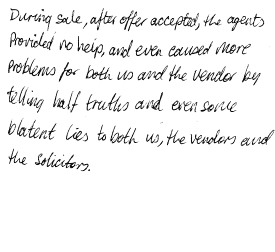 During sale, after offer accepted, the agents
Provided no help, and even caused more
problems for both us and the vendor by
telling half truths and even some
blatent lies to both us, the vendors and
the solicitors.